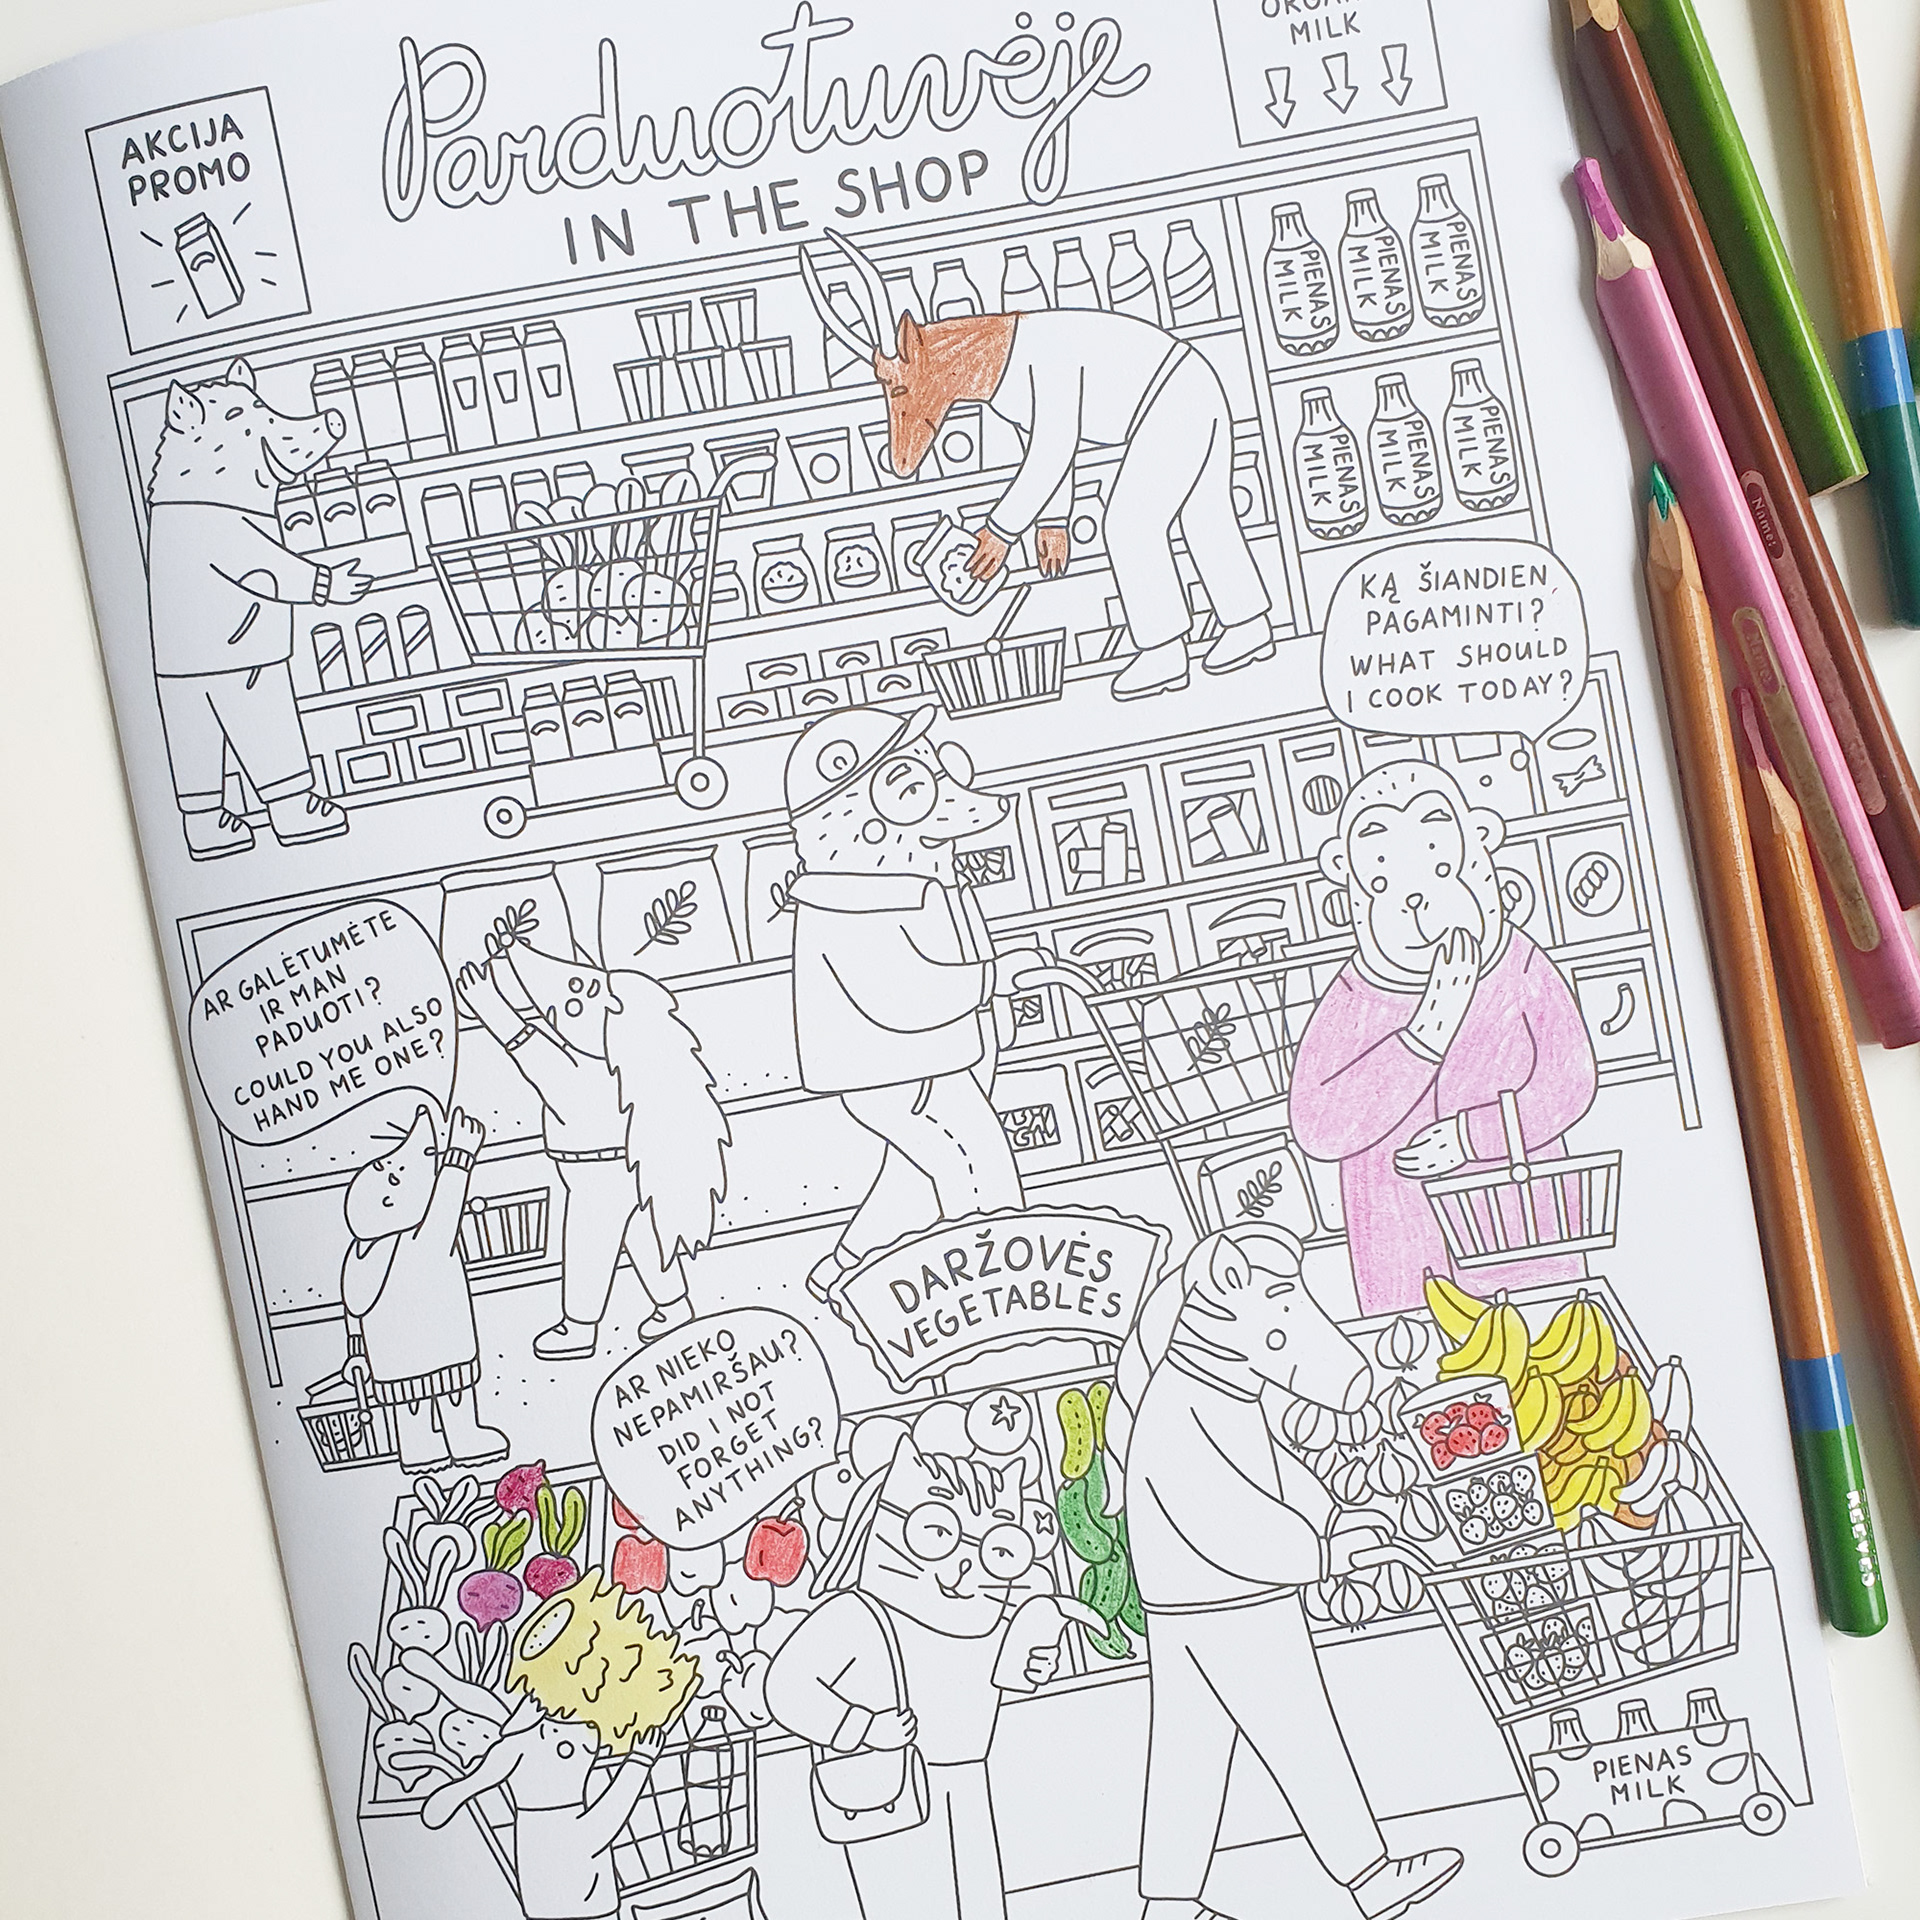 AKCIJA
PROMO
Parduotuvėje
IN THE SHOP
MILK
PIENAS
MILK
PIENAS
MILK
PIENAS
MILK
PIENAS
MILK
PIENAS
MILK
PIENAS
MILK
KĄ ŠIANDIEN
PAGAMINTI?
WHAT SHOULD
I COOK TODAY?
AR GALĖTUMĖTE
IR MAN
PADUOTI?
COULD YOU ALSO
HAND ME ONE?
DARŽOVĖS
VEGETABLES
AR NIEKO
NEPAMIRŠAU?
DID I NOT
FORGET
ANYTHING?
PIENAS
MILK
Name: